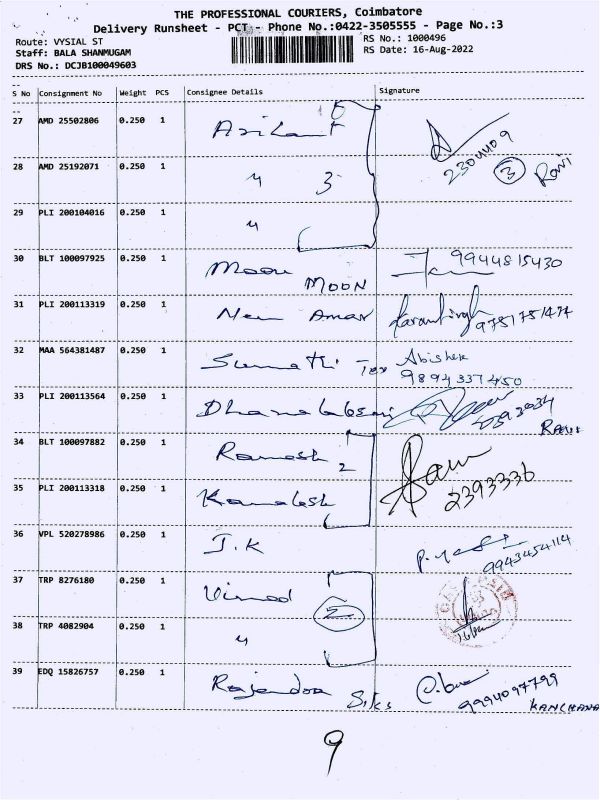 THE PROFESSIONAL COURIERS, Coimbatore
Delivery Runsheet - PCT - Phone No.:0422-3505555 - Page No.:3
Route: VYSIAL ST
RS No.: 1000496
Staff: BALA SHANMUGAM
RS Date: 16-Aug-2022
DRS No.: DCJB100049603
S No Consignment No Weight PCS Consignee Details Signature
27 AMD 25502806 0.250 1
2304409
28 AMD 25192071 0.250 1 " 3 3 Ravi
29 PLI 200104016 0.250 1 "
30 BLT 100097925 0.250 1 Moon MOON 9944815430
31 PLI 200113319 0.250 1 New Amar
32 MAA 564381487 0.250 1 Sumathi Tex Abishek
9894337450
33 PLI 200113564 0.250 1
34 BLT 100097882 0.250 1 Ramesh 2
35 PLI 200113318 0.250 1 Kamalesh 2393336
36 VPL 520278986 0.250 1 J.K
9943454114
37 TRP 8276180 0.250 1 Vinod 2
38 TRP 4082904 0.250 1 "
39 EDQ 15826757 0.250 1 Rajendra Silks 9994097799
KANCHANA
9